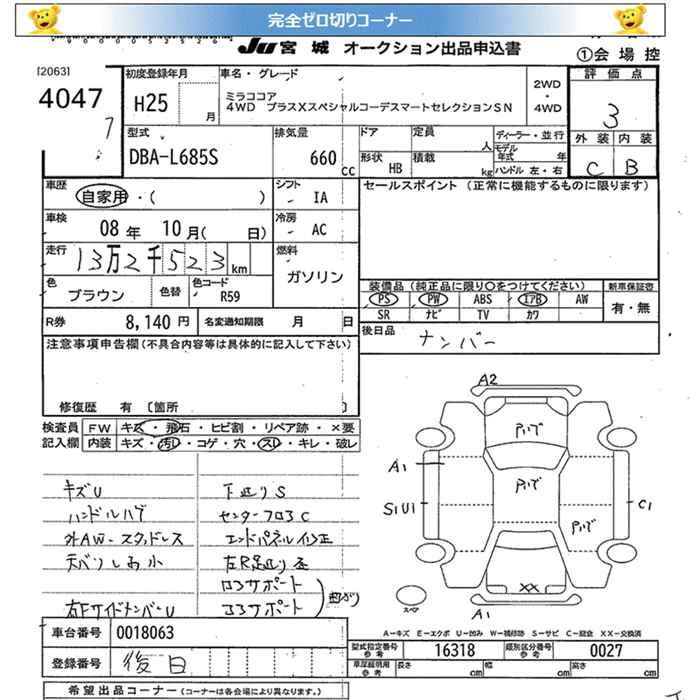 完全ゼロ切りコーナー
JU 宮城 オークション出品申込書
①会場控
[2063]
4047
7
初度登録年月
H25
月
車名・グレード
ミラココア
4WD プラスXスペシャルコーデスマートセレクションSN
2WD
・
4WD
評価点
3
外装 内装
C B
型式
DBA-L685S
排気量
660 cc
ドア
定員
人
ディーラー・並行
モデル
年式 年
形状 HB
積載 kg
ハンドル 左・右
車歴
自家用・( )
シフト
IA
セールスポイント (正常に機能するものに限ります)
車検
08 年 10 月( 日)
冷房
AC
走行
13万2千523 km
燃料
ガソリン
色
ブラウン
色替
色コード
R59
装備品 (純正品に限り○をつけてください)
新車保証書
PS PW ABS エアB AW
有・無
SR ナビ TV カワ
R券 8,140 円
名変通知期限 月 日
後日品
ナンバー
注意事項申告欄(不具合内容等は具体的に記入して下さい)
修復歴 有 〔箇所 〕
検査員
記入欄
FW キズ・飛石・ヒビ割・リペア跡・×要
内装 キズ・汚れ・コゲ・穴・スレ・キレ・破レ
キズU
ハンドルハゲ
外AW-スタッドレス
右FサイドメンバーU
下廻りS
センターフロアC
エンドパネル修正
コアサポート
A2
アハ゜テ
A1
S1U1
C1
XX
A1
スペア
A-キズ E-エクボ U-凹み W-補修跡 S-サビ C-腐食 XX-交換済
車台番号 0018063
登録番号 後日
型式指定番号
参考
16318
類別区分番号
参考
0027
車庫証明用
参考
長さ cm 幅 cm 高さ cm
希望出品コーナー (コーナーは各会場により異なります。)